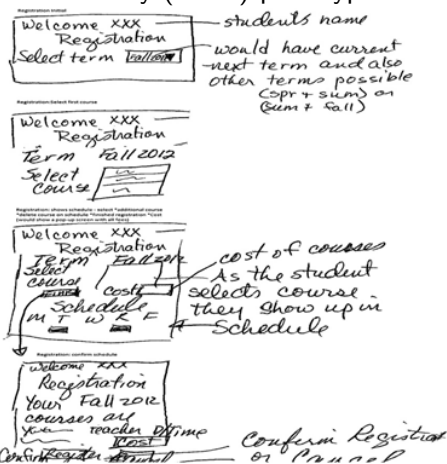 Registration Initial
Welcome XXX
Registration
Select term
student's name
would have current
next term and also
other terms possible
(spr + sum) or
(sum + fall)
Registration: Select first course
Welcome XXX
Registration
Term Fall 2012
Select
Course
Registration: shows schedule - select *additional course
*delete course on schedule *finished registration *Cost
(would show a pop-up screen with all fees)
Welcome XXX
Registration
Term Fall 2012
Select
course
Cost
Schedule
M T W R F
cost of courses
As the student
selects course
they show up in
Schedule
Registration: confirm schedule
Welcome XXX
Registration
Your Fall 2012
courses are
Teacher D/Time
Cost
Confirm Register
Confirm Registrat
or Cancel